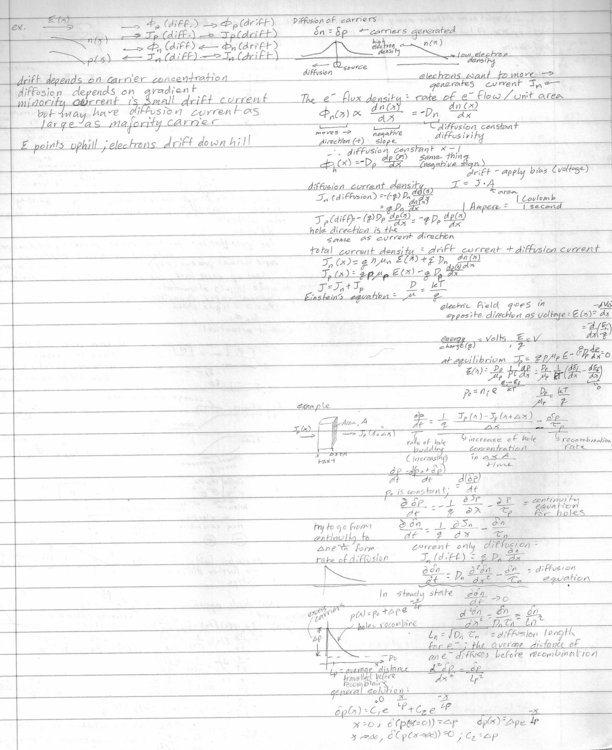 ex.
E(x) → ϕp(diff.) → ϕp(drift)
→ Jp(diff) → Jp(drift)
n(x) → ϕn(diff) ← ϕn(drift)
p(x) ← Jn(diff) → Jn(drift)
drift depends on carrier concentration
diffusion depends on gradient
minority current is small drift current
but may have diffusion current as
large as majority carrier
E points uphill; electrons drift downhill
Diffusion of carriers
δn = δp ← carriers generated
high electron density
n(x)
low electron density
source
diffusion
electrons want to move →
generates current Jn ←
The e⁻ flux density: rate of e⁻ flow/unit area
ϕn(x) ∝ dn(x)/dx = -Dn dn(x)/dx
moves → direction (+)
negative slope
diffusion constant
diffusivity
∴ diffusion constant × -1
ϕp(x) = -Dp dp(x)/dx same thing (negative sign)
drift - apply bias (voltage)
diffusion current density
I = J·A
area
Jn(diffusion) = -(q)Dn dn(x)/dx
= qDn dn/dx
1 Ampere = 1 Coulomb / 1 second
Jp(diff) = -(q)Dp dp(x)/dx = -qDp dp(x)/dx
hole direction is the
same as current direction
total current density = drift current + diffusion current
Jn(x) = q n μn E(x) + q Dn dn(x)/dx
Jp(x) = q p μp E(x) - q Dp dp(x)/dx
J = Jn + Jp
Einstein's equation = D/μ = kT/q
electric field goes in
opposite direction as voltage: E(x) =
energy/charge(q) = volts, E/q = V
at equilibrium Jp = q p μp E - qDp dp/dx = 0
Dp/μp = kT/q
example
Area, A
Jp(x)
Jp(x+Δx)
x
x+Δx
δp/δt = 1/q Jp(x) - Jp(x+Δx)/Δx - δp/τp
rate of hole
building
(increasing)
increase of hole
concentration
in Δx A
time
recombination
rate
p₀ is constant;
∂δp/dt = -1/q ∂Jp/∂x - δp/τp = continuity equation for holes
∂δn/dt = 1/q ∂Jn/∂x - δn/τn
try to go from
continuity to
form
rate of diffusion
current only diffusion:
Jn(diff) = q Dn ∂n/∂x
∂δn/∂t = Dn ∂²δn/∂x² - δn/τn = diffusion equation
In steady state ∂δn/∂t → 0
d²δn/dx² = δn/Dnτn = δn/Ln²
Ln = √Dnτn = diffusion length
for e⁻; the average distance of
an e⁻ diffuses before recombination
d²δp/dx² = δp/Lp²
excess
carriers
p(x) = p₀ + Δp e^(-x/Lp)
holes recombine
Δp
p₀
Lp = average distance
travelled before
recombining
general solution:
δp(x) = C₁e^(x/Lp) + C₂e^(-x/Lp)
x=0, δ(p(x=0)) = Δp δp(x) = Δp e^(-x/Lp)
x→∞, δ(p(x→∞)) = 0; C₂ = Δp